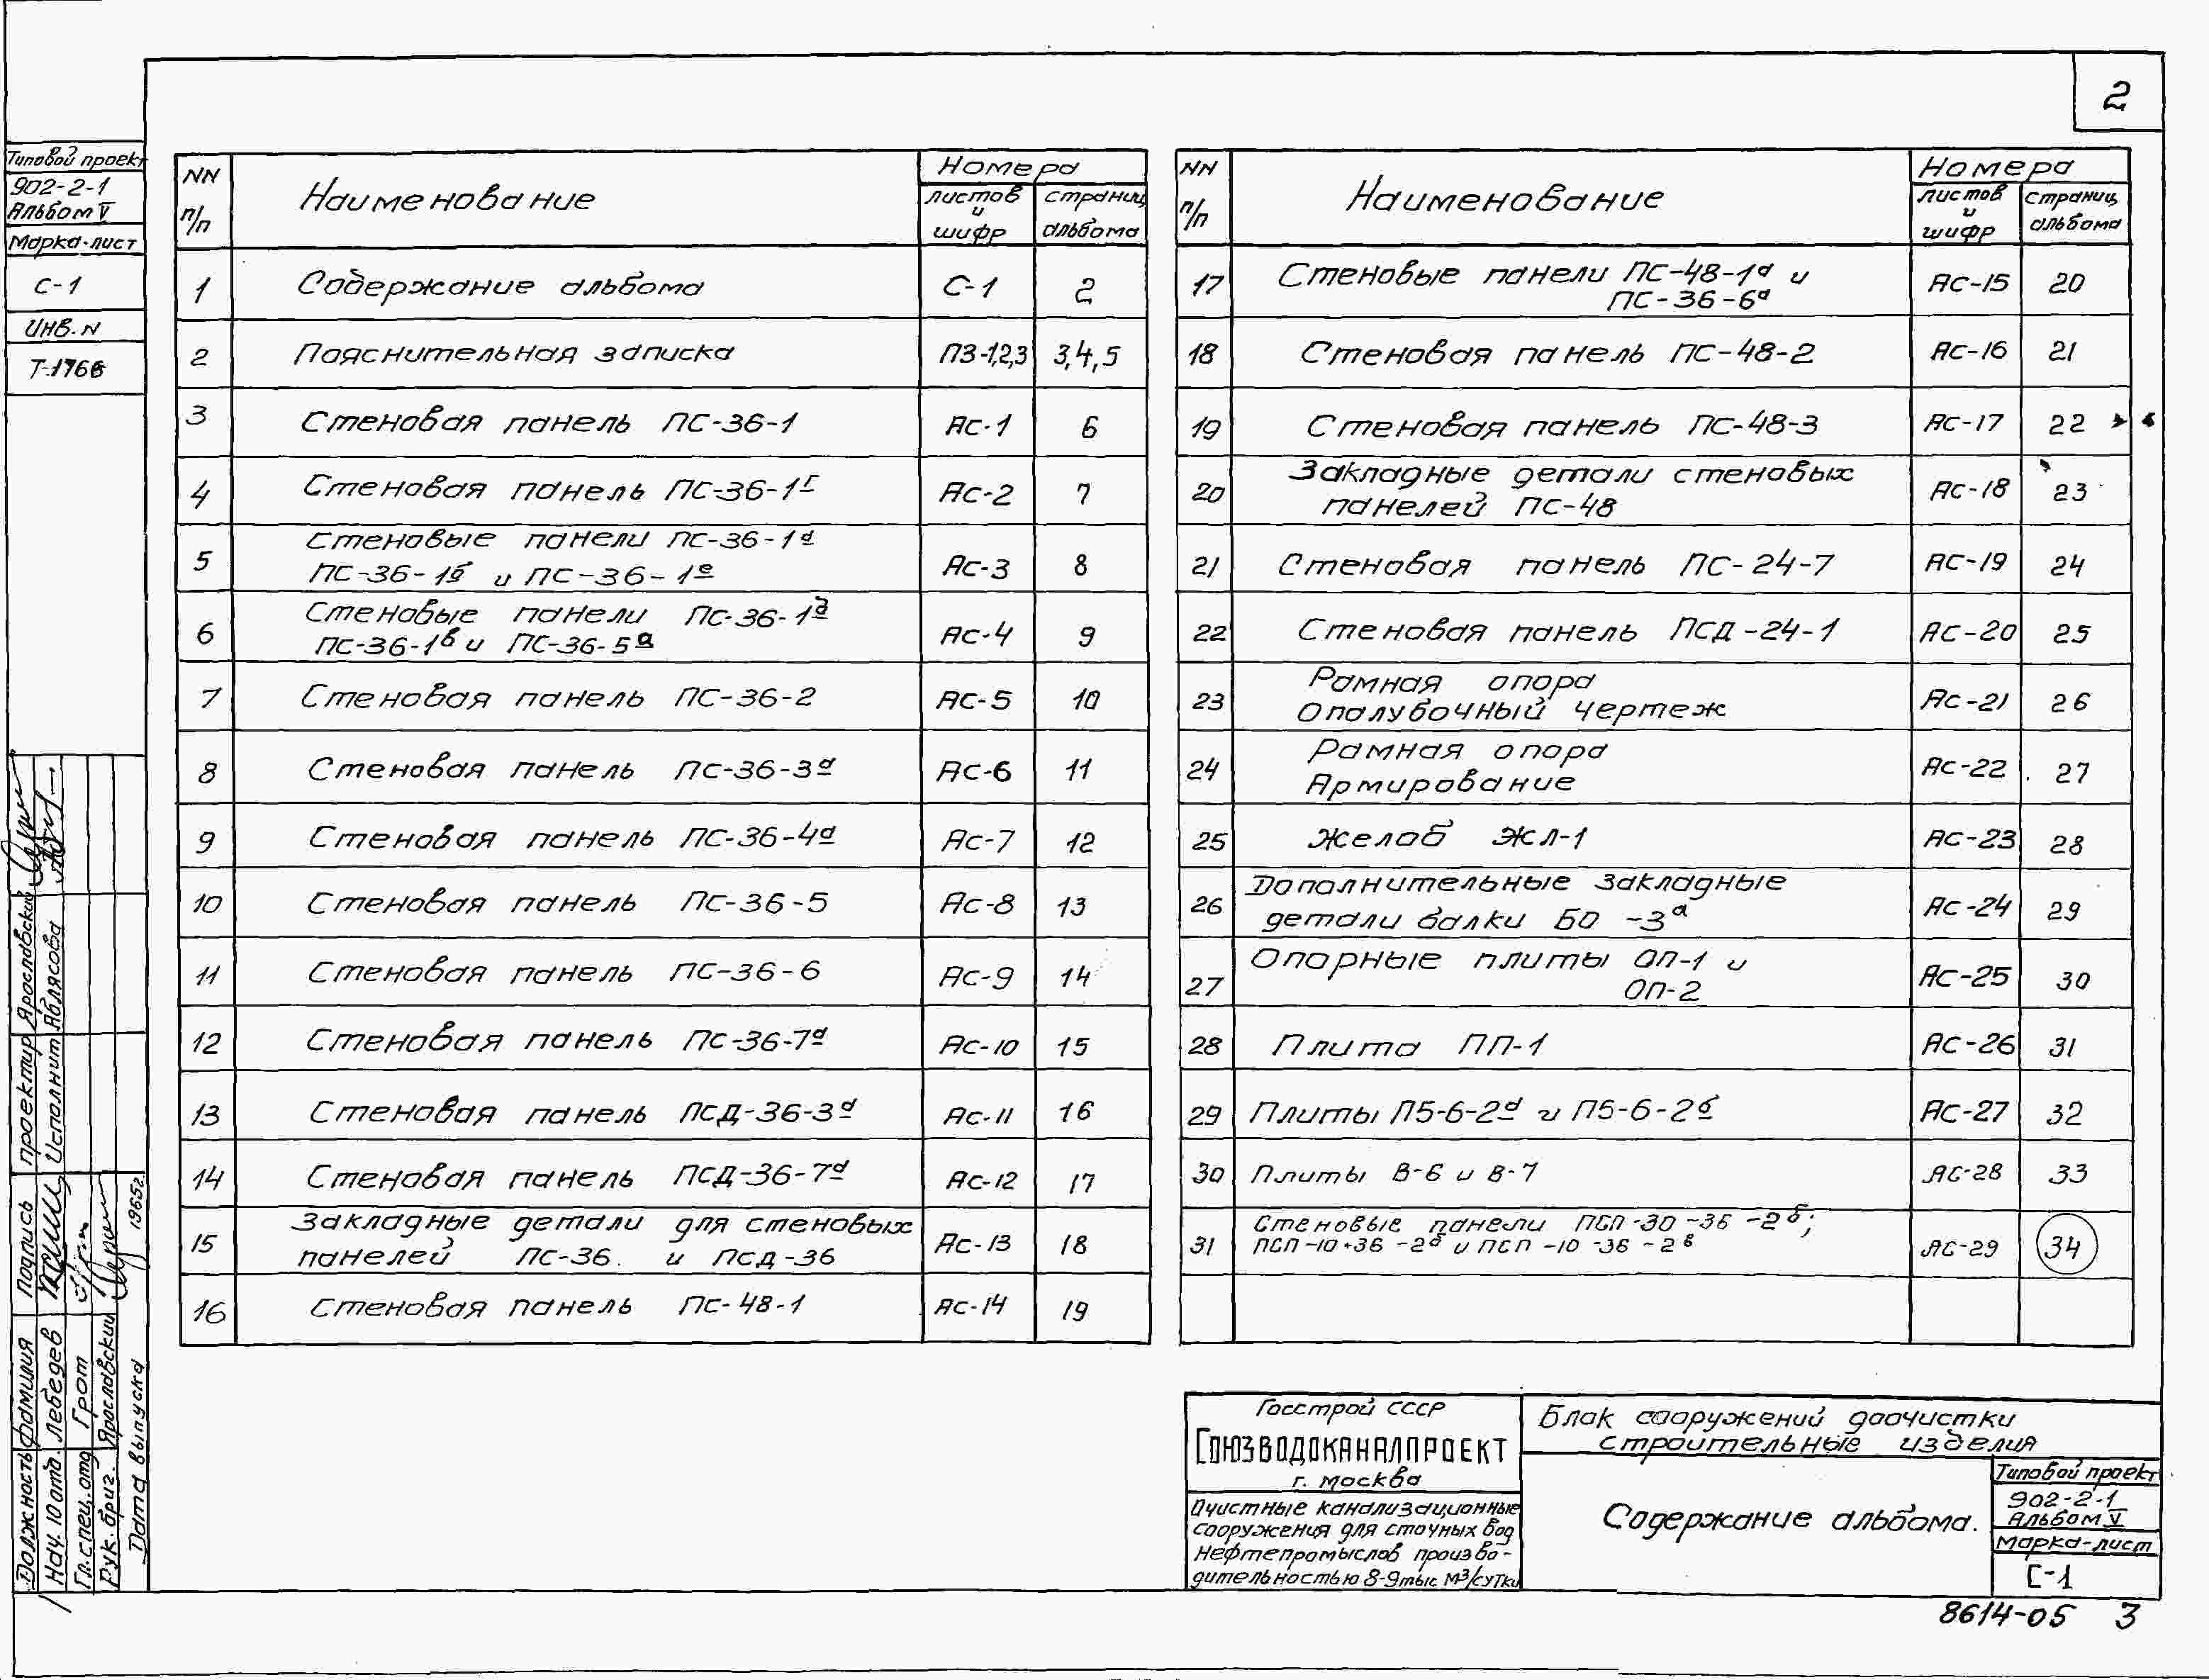 2
Типовой проект
902-2-1
Альбом V
Марка-лист
С-1
Инв. N
Т-1766
NN п/п
Наименование
Номера
листов и шифр
страниц альбома
1 Содержание альбома С-1 2
2 Пояснительная записка ПЗ-1,2,3 3,4,5
3 Стеновая панель ПС-36-1 АС-1 6
4 Стеновая панель ПС-36-1г АС-2 7
5 Стеновые панели ПС-36-1а
ПС-36-1б и ПС-36-1е АС-3 8
6 Стеновые панели ПС-36-1д
ПС-36-1в и ПС-36-5а АС-4 9
7 Стеновая панель ПС-36-2 АС-5 10
8 Стеновая панель ПС-36-3а АС-6 11
9 Стеновая панель ПС-36-4а АС-7 12
10 Стеновая панель ПС-36-5 АС-8 13
11 Стеновая панель ПС-36-6 АС-9 14
12 Стеновая панель ПС-36-7а АС-10 15
13 Стеновая панель ПСД-36-3а АС-11 16
14 Стеновая панель ПСД-36-7а АС-12 17
15 Закладные детали для стеновых
панелей ПС-36 и ПСД-36 АС-13 18
16 Стеновая панель ПС-48-1 АС-14 19
NN п/п
Наименование
Номера
листов и шифр
страниц альбома
17 Стеновые панели ПС-48-1а и
ПС-36-6а АС-15 20
18 Стеновая панель ПС-48-2 АС-16 21
19 Стеновая панель ПС-48-3 АС-17 22
20 Закладные детали стеновых
панелей ПС-48 АС-18 23
21 Стеновая панель ПС-24-7 АС-19 24
22 Стеновая панель ПСД-24-1 АС-20 25
23 Рамная опора
Опалубочный чертеж АС-21 26
24 Рамная опора
Армирование АС-22 27
25 Желоб ЖЛ-1 АС-23 28
26 Дополнительные закладные
детали балки БО-3а АС-24 29
27 Опорные плиты ОП-1 и
ОП-2 АС-25 30
28 Плита ПП-1 АС-26 31
29 Плиты П5-6-2а и П5-6-2б АС-27 32
30 Плиты В-6 и В-7 АС-28 33
31 Стеновые панели ПСП-30-36-2б;
ПСП-10-36-2б и ПСП-10-36-2в АС-29 34
Проектир. Ярославский
Исполнит. Аблясова
Должность Фамилия Подпись
Нач. 10 отд. Лебедев
Гл. спец. отд Грот
Рук. бриг. Ярославский
Дата выпуска 1965г.
Госстрой СССР
Союзводоканалпроект
г. Москва
Очистные канализационные
сооружения для сточных вод
нефтепромыслов произво-
дительностью 8-9 тыс м3/сутки
Блок сооружений доочистки
строительные изделия
Содержание альбома.
Типовой проект
902-2-1
Альбом V
Марка-лист
С-1
8614-05 3